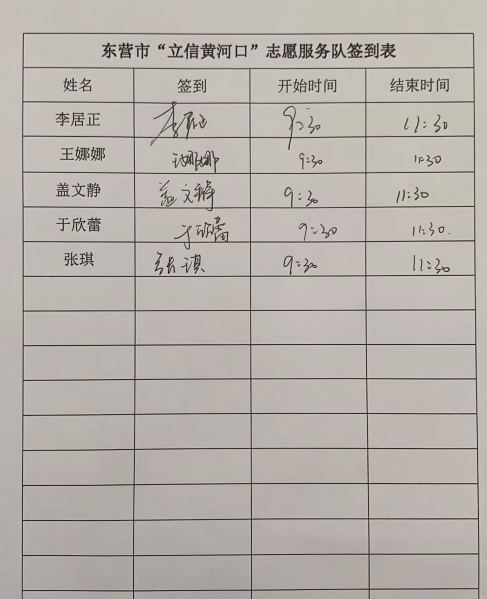 东营市“立信黄河口”志愿服务队签到表
姓名 签到 开始时间 结束时间
李居正 李居正 9:30 11:30
王娜娜 王娜娜 9:30 11:30
盖文静 盖文静 9:30 11:30
于欣蕾 于欣蕾 9:30 11:30.
张琪 张琪 9:30 11:30